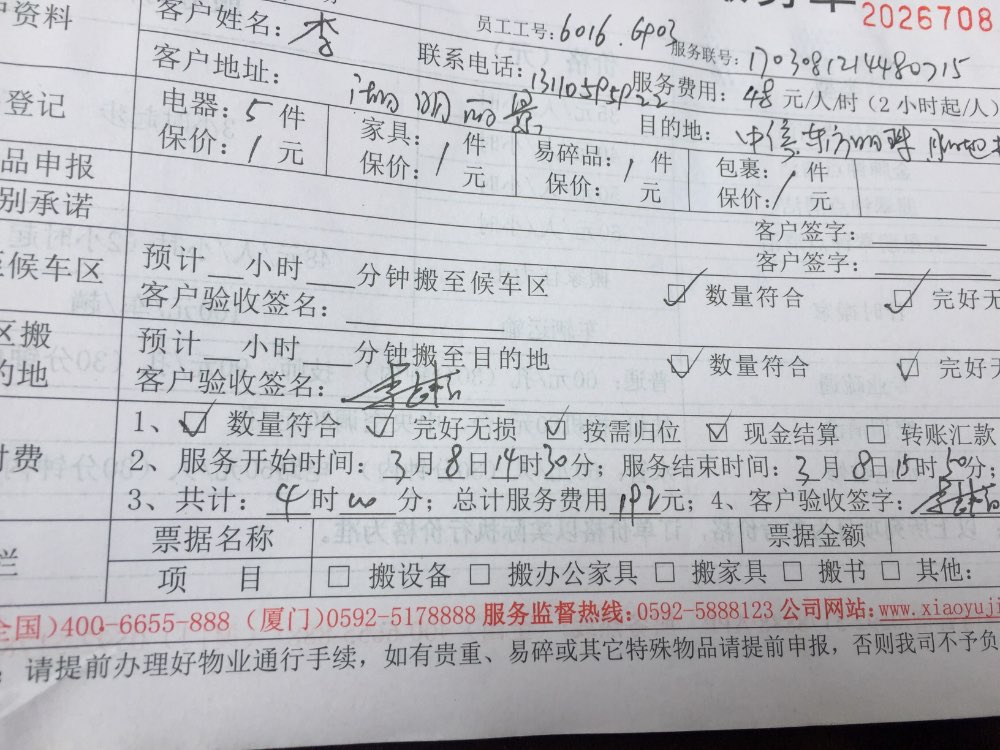 户资料
2026708
客户姓名：李
员工工号：6016.6P03 服务联号：1703081214480715
客户地址：
联系电话：服务费用：48元/人/时（2小时起/人）
登记
电器：5件 家具：1件 易碎品：1件 包裹：1件
目的地：
保价：1元 保价：1元 保价：1元 保价：1元
品申报
别承诺
客户签字：
至候车区
预计 小时 分钟搬至候车区
客户签字：
客户验收签名：
☑ 数量符合 ☑ 完好无
区搬
的地
预计 小时 分钟搬至目的地
☑ 数量符合 ☑ 完好无
客户验收签名：
付费
1、☑ 数量符合 ☑ 完好无损 ☑ 按需归位 ☑ 现金结算 □ 转账汇款
2、服务开始时间：3月8日14时30分；服务结束时间：3月8日15时50分；
3、共计：4时00分；总计服务费用192元；4、客户验收签字：
栏
票据名称 票据金额
项 目 □ 搬设备 □ 搬办公家具 □ 搬家具 □ 搬书 □ 其他：
全国)400-6655-888 (厦门)0592-5178888 服务监督热线:0592-5888123 公司网站:www.xiaoyuji
请提前办理好物业通行手续，如有贵重、易碎或其它特殊物品请提前申报，否则我司不予负